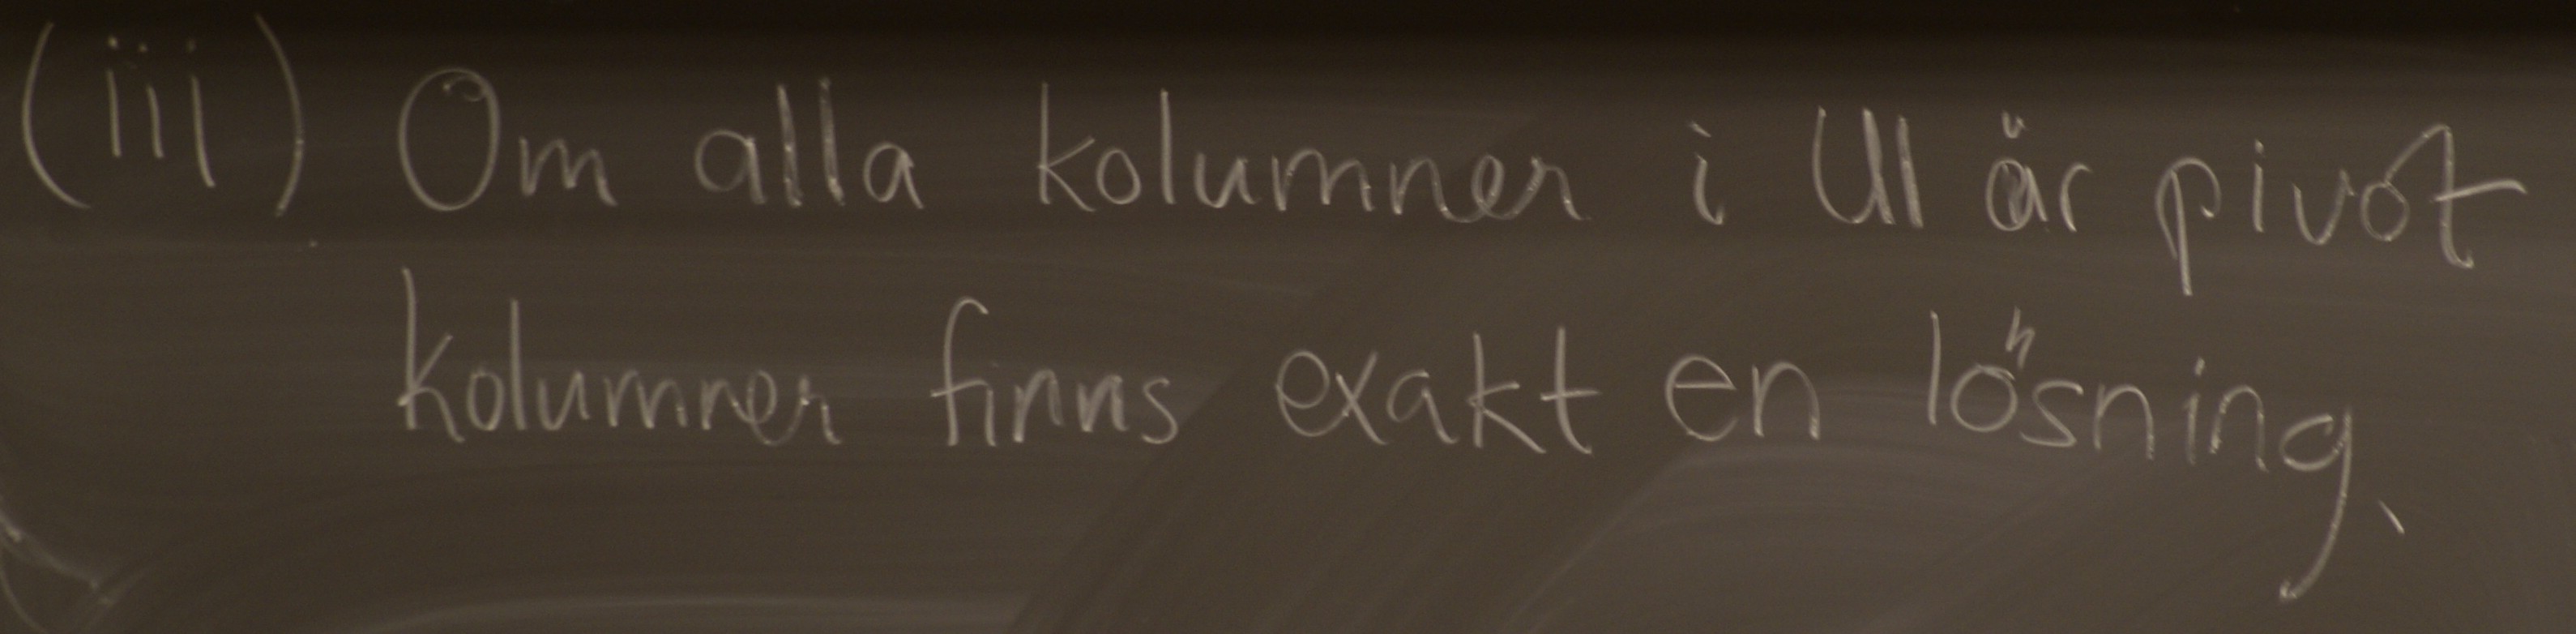 (iii) Om alla kolumner i U är pivot
kolumner finns exakt en lösning.